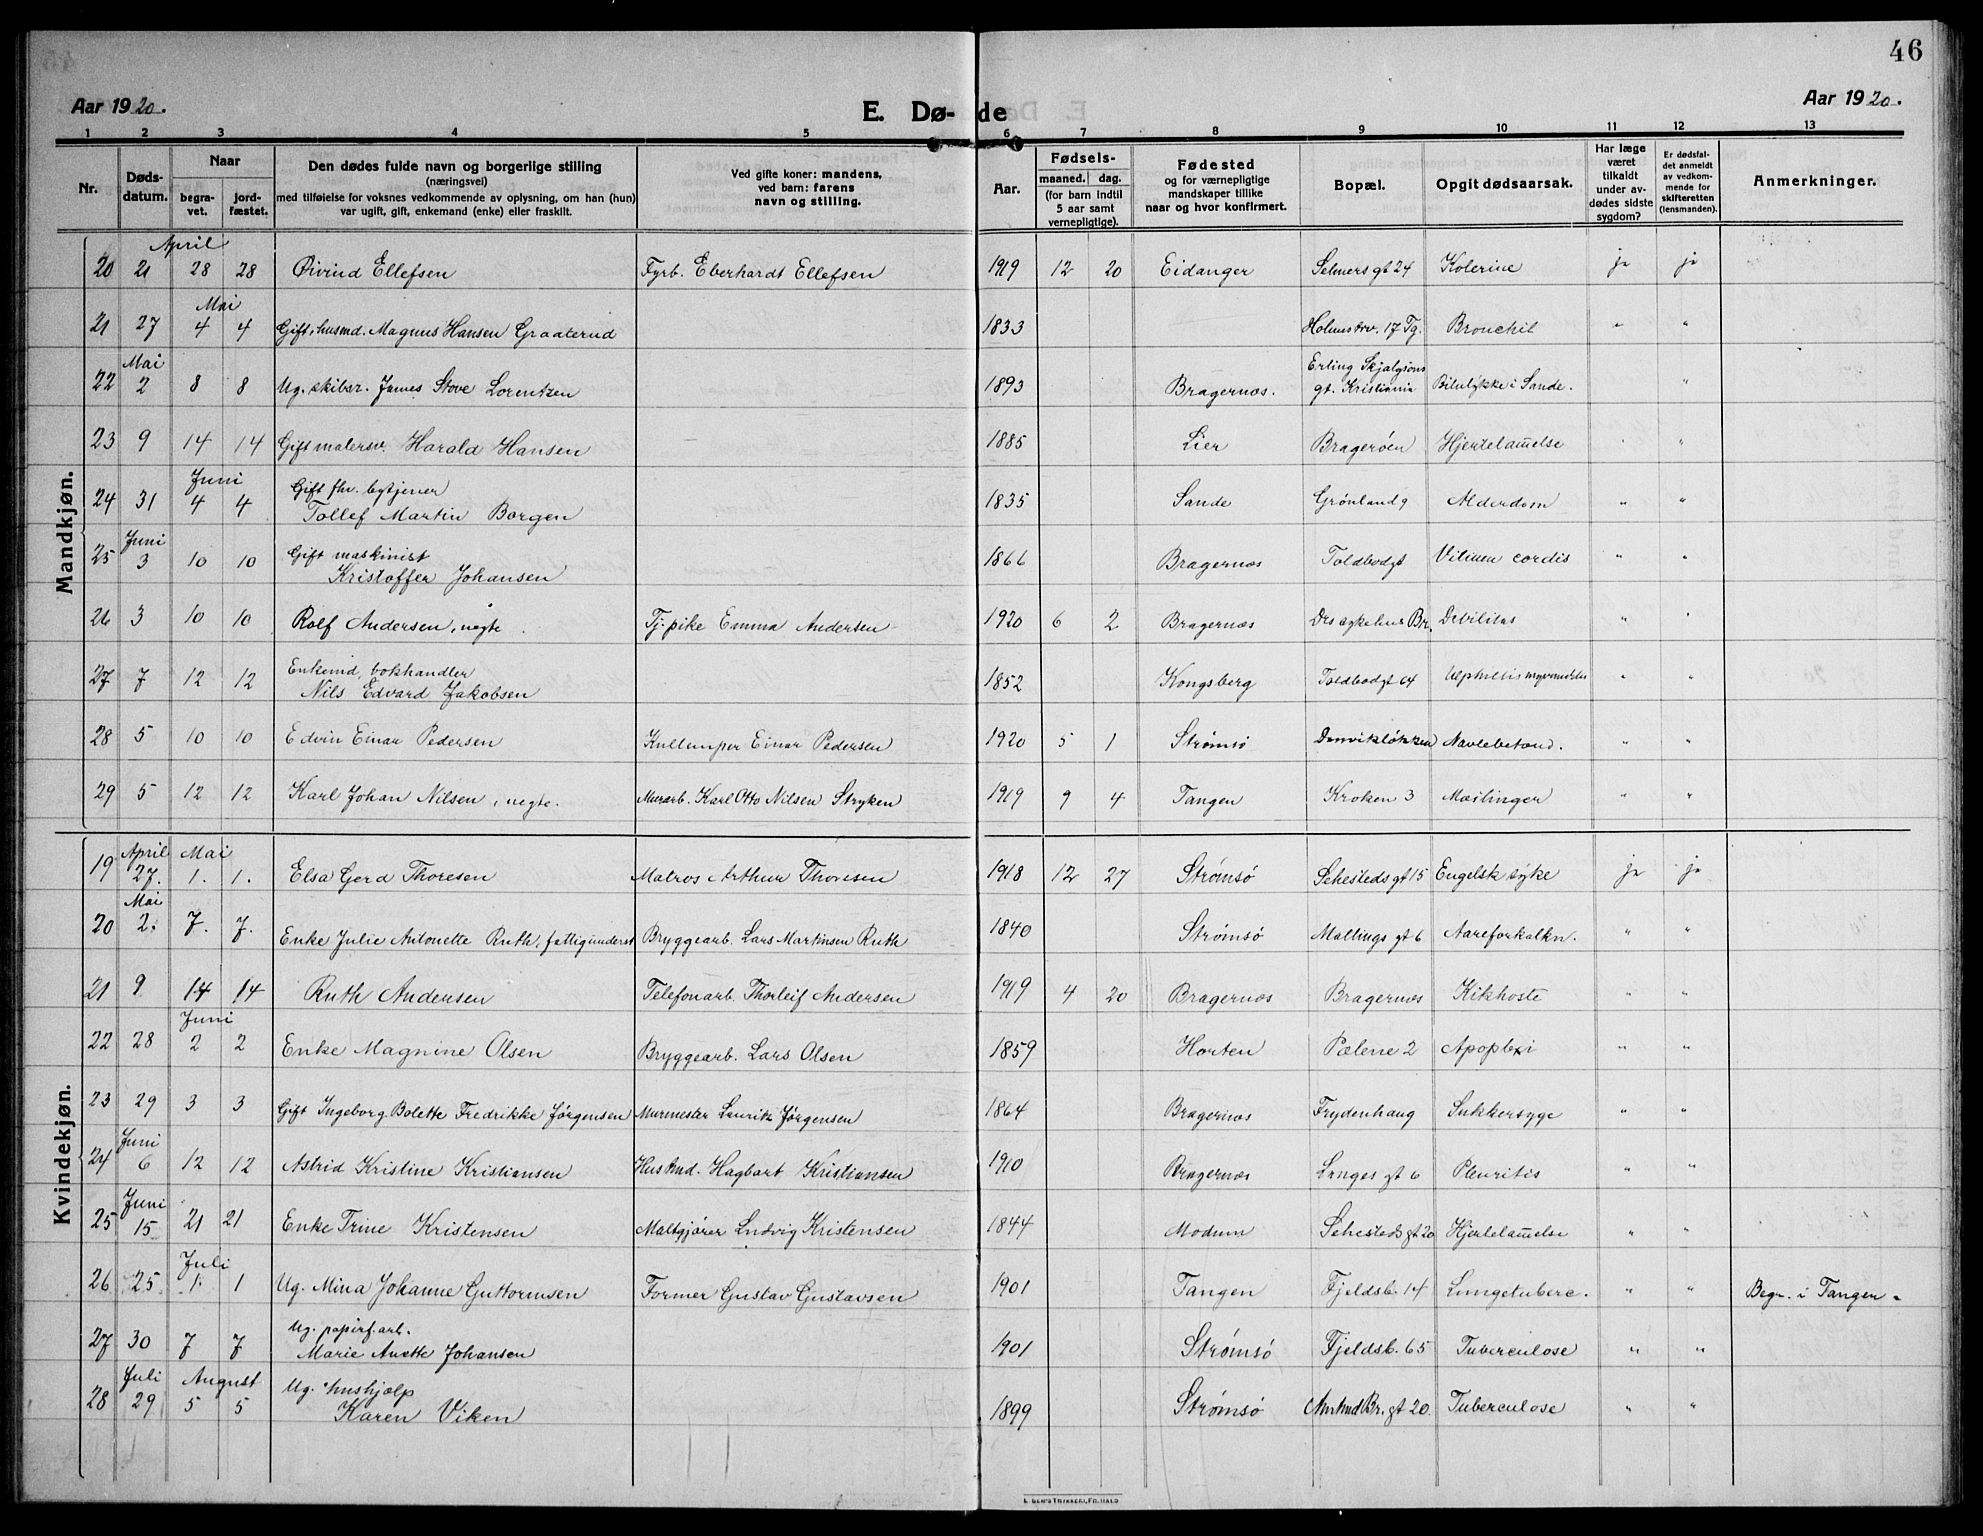 46
Aar 1920.
E. Dø- de
Aar 1920.
1 2 3 4 5 6 7 8 9 10 11 12 13
Nr. Døds-datum. Naar begra-vet. jord-fæstet. Den dødes fulde navn og borgerlige stilling (næringsvei) med tilføielse for voksnes vedkommende av oplysning, om han (hun) var ugift, gift, enkemand (enke) eller fraskilt. Ved gifte koner: mandens, ved barn: farens navn og stilling. Aar. Fødsels- maaned. dag. (for barn indtil 5 aar samt vernepligtige). Fødested og for værnepligtige mandskaper tillike naar og hvor konfirmert. Bopæl. Opgit dødsaarsak. Har læge været tilkaldt under av-dødes sidste sygdom? Er dødsfal-det anmeldt av vedkom-mende for skifteretten (lensmanden). Anmerkninger.
Mandkjøn.
April
20 21 28 28 Øivind Ellefsen Fyrb. Eberhardt Ellefsen 1919 12 20 Eidanger Selmersgt 24 Kolerine ja ja
Mai
21 27 4 4 Gift, husmd. Magnus Hansen Graaterud 1833 Holmstrv. 17 Tg. Bronchit " "
Mai
22 2 8 8 Ug. skibsr. James Stove Lorentzen 1893 Bragernæs. Erling Skjalgsøns gt. Kristiania Bilulykke i Sande. "
23 9 14 14 Gift malersv. Harald Hansen 1885 Lier Bragerøen Hjertelamelse "
Juni
24 31 4 4 Gift fhv. bytjener Tollef Martin Borgen 1835 Sande Grønland 9 Alderdom " "
Juni
25 3 10 10 Gift maskinist Kristoffer Johansen 1866 Bragernæs Toldbodgt Vitium cordis " "
26 3 10 10 Rolf Andersen, uegte Tj. pike Emma Andersen 1920 6 2 Bragernæs Drs sykehus Br. Debilitas " "
27 7 12 12 Enkemd, bokhandler Nils Edvard Jakobsen 1852 Kongsberg Toldbodgt 64 " "
28 5 10 10 Edvin Einar Pedersen Kullemper Einar Pedersen 1920 5 1 Strømsø Danvikløkken Navlebetænd. " "
29 5 12 12 Karl Johan Nilsen, uegte. Murarb. Karl Otto Nilsen Stryken 1919 9 4 Tangen Kroken 3 Mæslinger " "
Kvindekjøn.
April Mai
19 27. 1. 1. Elsa Gerd Thoresen Matros Arthur Thoresen 1918 12 27 Strømsø Sehestedsgt 15 Engelsk syke ja ja
Mai
20 2. 7. 7. Enke Julie Antonette Ruth, fattigunderst Bryggearb. Lars Martinsen Ruth 1840 Strømsø Mallings gt 6 Aareforkalkn. " "
21 9 14 14 Ruth Andersen Telefonarb. Thorleif Andersen 1919 4 20 Bragernæs Bragernæs Kikhoste " "
Juni
22 28 2 2 Enke Magnine Olsen Bryggearb. Lars Olsen 1859 Horten Pælene 2 Apoplexi " "
23 29 3 3 Gift Ingeborg Bolette Fredrikke Jørgensen Murmester Laurits Jørgensen 1864 Bragernæs Frydenhaug Sukkersyge " "
Juni
24 6 12 12 Astrid Kristine Kristiansen Husmd. Hagbart Kristiansen 1910 Bragernæs Langes gt 6 Pleuritis " "
Juni
25 15 21 21 Enke Trine Kristensen Maltgjører Ludvig Kristensen 1844 Modum Sehestedsgt 20 Hjertelamelse " "
Juli
26 25 1 1 Ug. Mina Johanne Guttormsen Former Gustav Gustavsen 1901 Tangen Fjeldsb. 14 Lungetuberc. " " Begr. i Tangen
27 30 7 7 Ug. papirf.arb. Marie Anette Johansen 1901 Strømsø Fjeldsb. 65 Tuberculose " "
Juli August
28 29 5 5 Ug. hushjelp Karen Viken 1899 Strømsø Amtmd Br. gt 20. Tuberculose " "